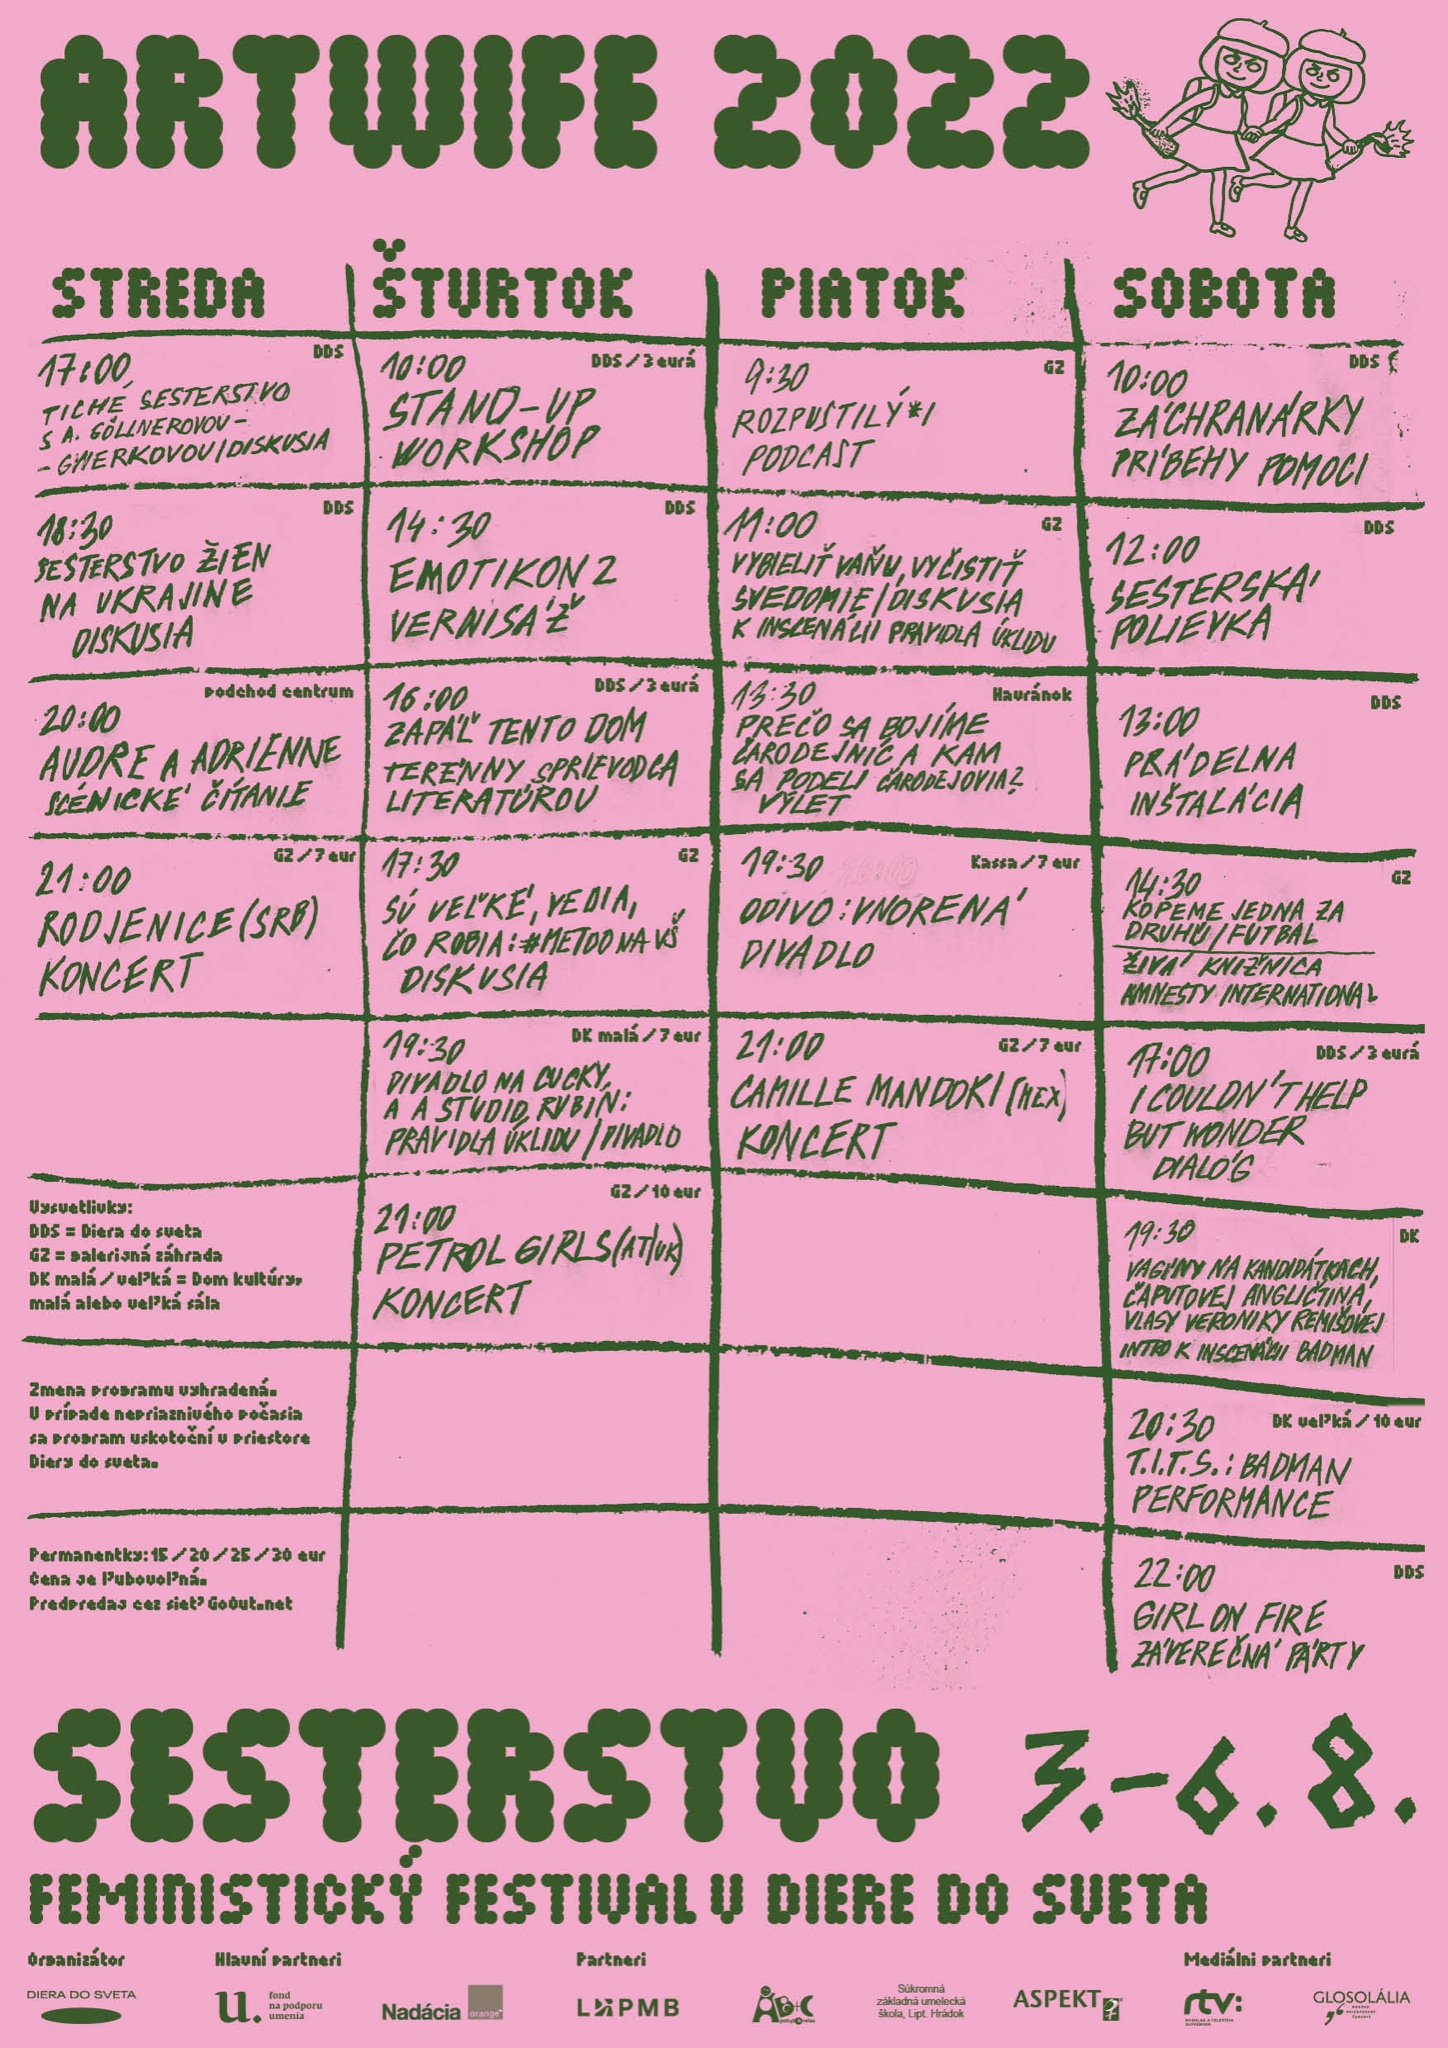 ARTWIFE 2022
STREDA
17:00
DDS
TICHÉ SESTERSTVO
S A. GÖLLNEROVOU-
-GWERKOVOU/DISKUSIA
18:30
DDS
SESTERSTVO ŽIEN
NA UKRAJINE
DISKUSIA
podchod centrum
20:00
AUDRE A ADRIENNE
SCÉNICKÉ ČÍTANIE
GZ / 7 eur
21:00
RODJENICE (SRB)
KONCERT
Vysvetlivky:
DDS = Diera do sveta
GZ = galerijná záhrada
DK malá / veľká = Dom kultúry,
malá alebo veľká sála
Zmena programu vyhradená.
V prípade nepriaznivého počasia
sa program uskotoční v priestore
Diery do sveta.
Permanentky: 15 / 20 / 25 / 30 eur
Cena je ľubovoľná.
Predpredaj cez sieť GoOut.net
ŠTVRTOK
10:00
DDS / 3 eurá
STAND-UP
WORKSHOP
14:30
DDS
EMOTIKON 2
VERNISÁŽ
16:00
DDS / 3 eurá
ZAPÁĽ TENTO DOM
TERÉNNY SPRIEVODCA
LITERATÚROU
17:30
GZ
SÚ VEĽKÉ, VEDIA,
ČO ROBIA: #METOO NA VŠ
DISKUSIA
19:30
DK malá / 7 eur
DIVADLO NA CUCKY,
A A STUDIO RUBÍN:
PRAVIDLA ÚKLIDU / DIVADLO
GZ / 10 eur
21:00
PETROL GIRLS (AT/UK)
KONCERT
PIATOK
9:30
GZ
ROZPUSTILÝ*I
PODCAST
11:00
GZ
VYBIELIŤ VAŇU, VYČISTIŤ
SVEDOMIE / DISKUSIA
K INSCENÁCII PRAVIDLA ÚKLIDU
13:30
Havránok
PREČO SA BOJÍME
ČARODEJNÍC A KAM
SA PODELI ČARODEJOVIA?
VÝLET
19:30
Kassa / 7 eur
ODIVO: VNORENÁ
DIVADLO
21:00
GZ / 7 eur
CAMILLE MANDOKI (MEX)
KONCERT
SOBOTA
10:00
DDS
ZÁCHRANÁRKY
PRÍBEHY POMOCI
12:00
DDS
SESTERSKÁ
POLIEVKA
13:00
DDS
PRÁDELNA
INŠTALÁCIA
14:30
GZ
KOPEME JEDNA ZA
DRUHÚ / FUTBAL
ŽIVÁ KNIŽNICA
AMNESTY INTERNATIONAL
17:00
DDS / 3 eurá
I COULDN'T HELP
BUT WONDER
DIALÓG
19:30
DK
VAGÍNY NA KANDIDÁTKACH,
ČAPUTOVEJ ANGLIČTINA,
VLASY VERONIKY REMIŠOVEJ
INTRO K INSCENÁCII BADMAN
20:30
DK veľká / 10 eur
T.I.T.S.: BADMAN
PERFORMANCE
22:00
DDS
GIRL ON FIRE
ZÁVEREČNÁ PÁRTY
SESTERSTVO 3.-6.8.
FEMINISTICKÝ FESTIVAL V DIERE DO SVETA
Organizátor
DIERA DO SVETA
Hlavní partneri
u. fond
na podporu
umenia
Nadácia orange
Partneri
LMPMB
ABC
Súkromná
základná umelecká
škola, Lipt. Hrádok
ASPEKT
Mediálni partneri
rtv:
ROZHLAS A TELEVÍZIA
SLOVENSKA
GLOSOLÁLIA